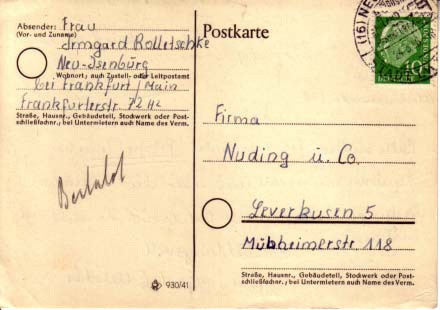 Absender: Frau
(Vor- und Zuname)
Irmgard Rolletschke
Neu-Isenburg
Wohnort, auch Zustell- oder Leitpostamt
bei Frankfurt/Main
Frankfurterstr. 72 Hz
Straße, Hausnr., Gebäudeteil, Stockwerk oder Post-
schließfachnr.; bei Untermietern auch Name des Verm.
930/41
Postkarte
(16) NEU
10
Firma
Nuding u. Co.
Leverkusen 5
Mülheimerstr. 118
Straße, Hausnr., Gebäudeteil, Stockwerk oder Post-
schließfachnr.; bei Untermietern auch Name des Verm.